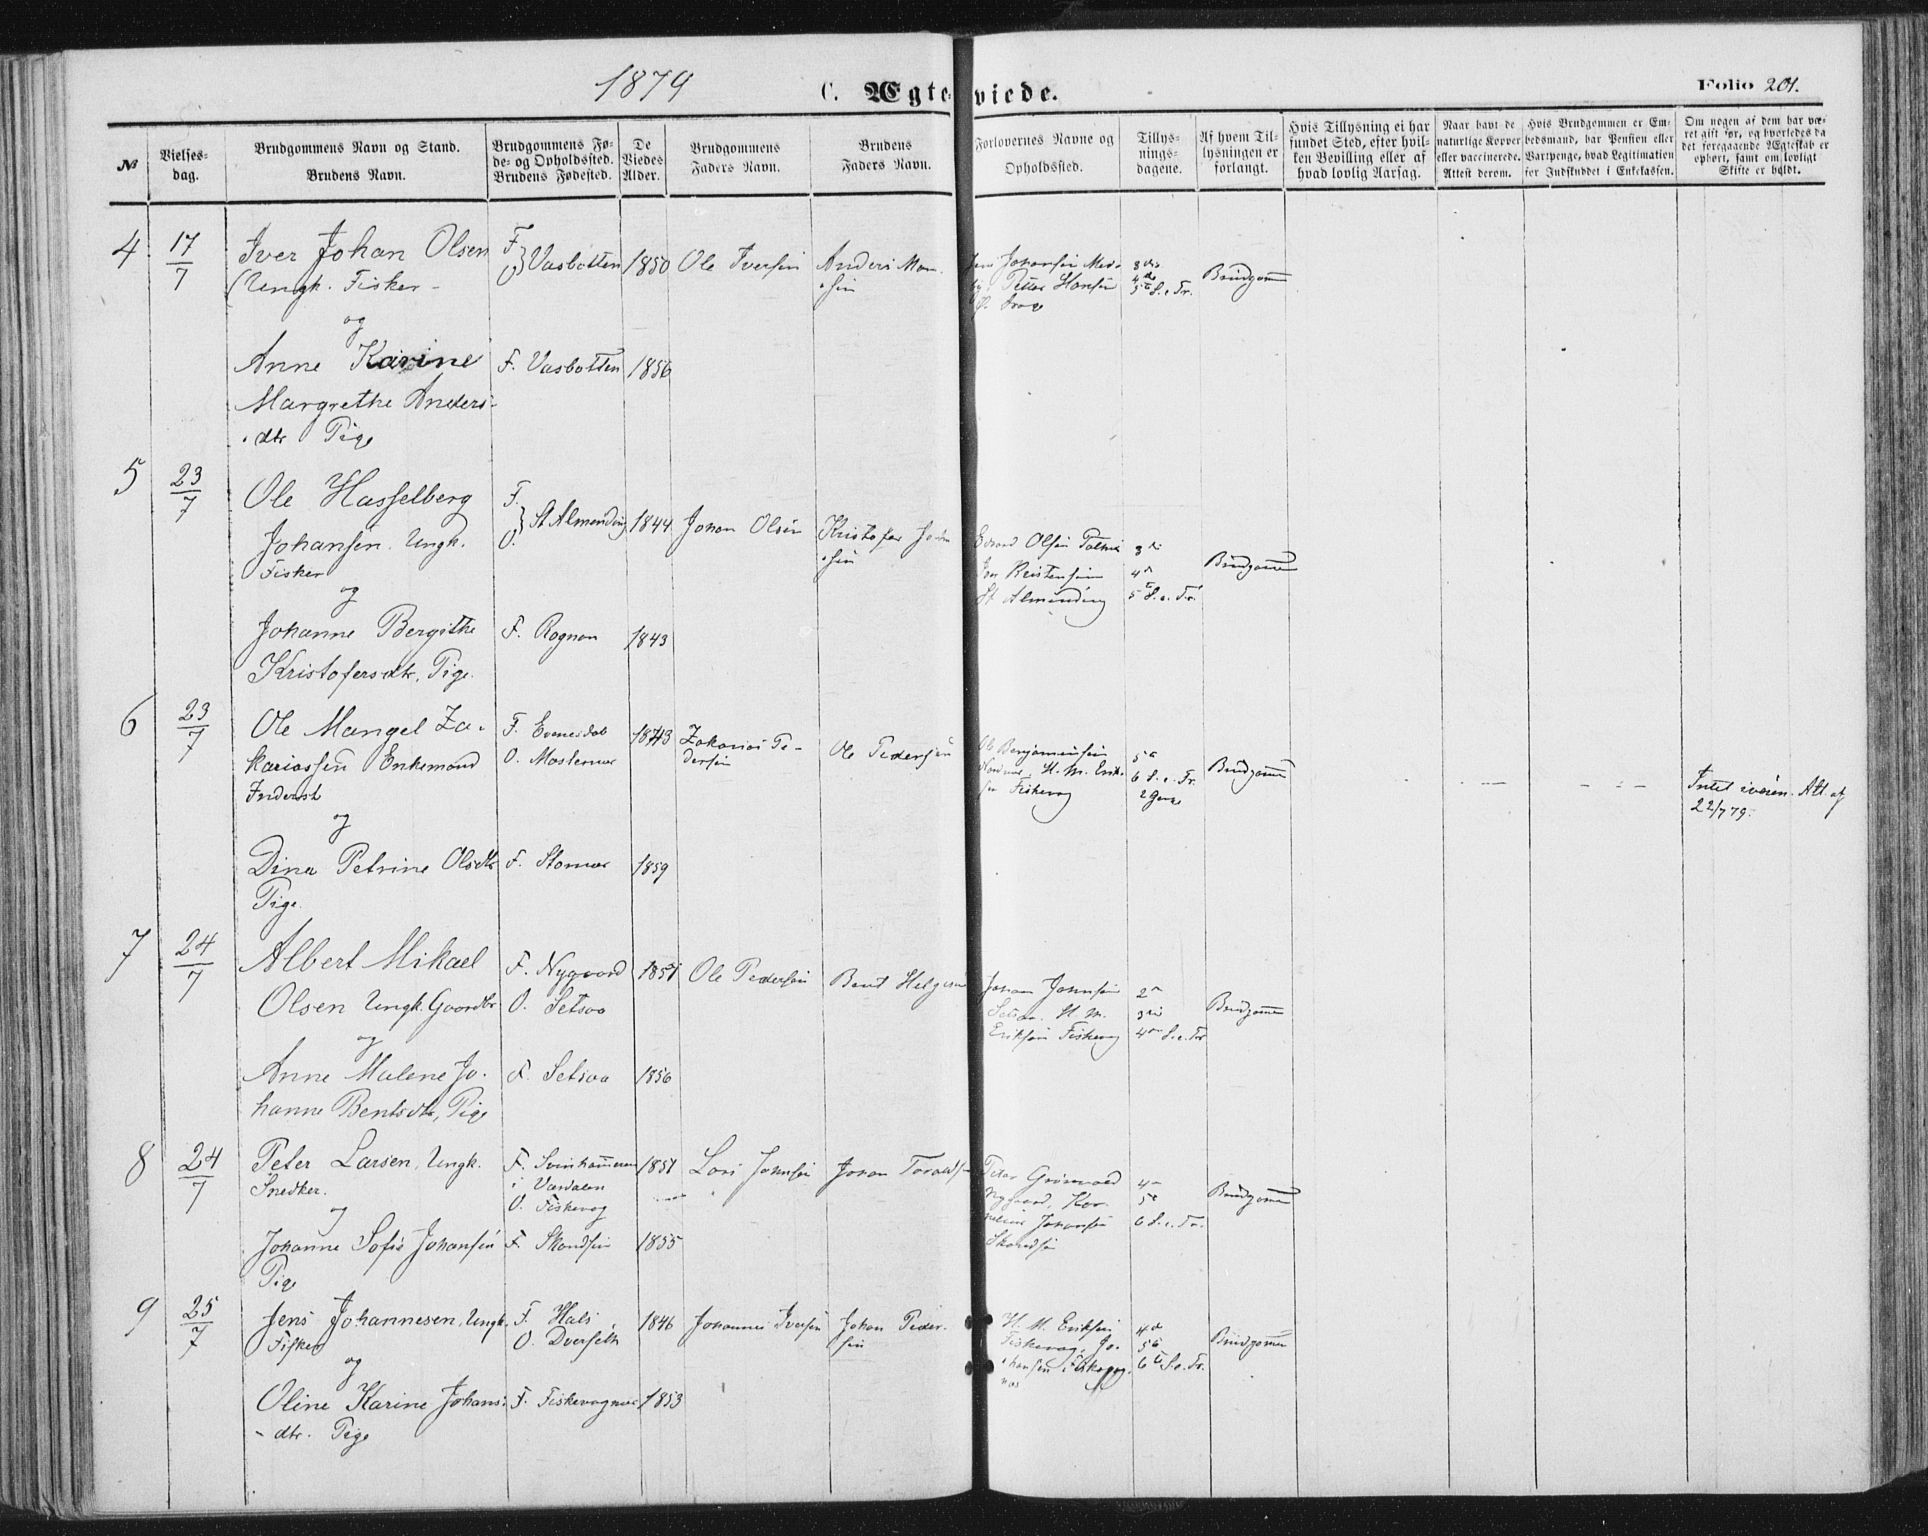 1879
C. Ægteviede.
Folio 201.
№
Vielses-
dag.
Brudgommens Navn og Stand.
Brudens Navn.
Brudgommens Fø-
de- og Opholdssted.
Brudens Fødested.
De
Viedes
Alder.
Brudgommens
Faders Navn.
Brudens
Faders Navn.
Forlovernes Navne og
Opholdssted.
Tillys-
nings-
dagene.
Af hvem Til-
lysningen er
forlangt.
Hvis Tillysning ei har
fundet Sted, efter hvil-
ken Bevilling eller af
hvad lovlig Aarsag.
Naar havt de
naturlige Kopper
eller vaccinerede.
Attest derom.
Hvis Brudgommen er Em-
bedsmand, har Pension eller
Vartpenge, hvad Legitimation
for Indskuddet i Enkekassen.
Om nogen af dem har væ-
ret gift før, og hvorledes da
det foregaaende Ægteskab er
ophørt, samt om lovligt
Skifte er holdt.
4 17/7 Iver Johan Olsen F. O. Vasbotten 1850 Ole Iversen Anders Mon-
sen
Ungk. Fisker
Petter Hansen
Brudgom̄
og
Anne Karine F. Vasbotten 1856
Margrethe Anders-
dtr Pige
5 23/7 Ole Hasselberg F. O. St Almending 1844 Johan Olsen Kristofer
Johansen. Ungk.
Fisker
Edvard Olsen
St Almending
3die
4de
5te S. e. Tr.
Brudgom̄
og
Johanne Bergithe F. Rognan 1843
Kristofersdtr, Pige.
6 23/7 Ole Mangel Za- F. Evenesdal 1843 Zakarias Pe-
dersen Ole Pedersen
kariassen Enkemand O.
Inderst
Ole Benjaminsen
H. M. Erik-
sen Fiskevag
5te
6 S. e. Tr.
2 Gange
Brudgom̄
Att. af
22/7 79.
og
Dina Petrine Olsdtr F. Stornes 1859
Pige.
7 24/7 Albert Mikael F. Nygaard 1851 Ole Pedersen Bent Helgesen
Olsen Ungk. Gaardbr O. Setsaa
Johan Johnsen
Setsaa. H. M.
Eriksen Fiskevag
2en
3die
4de S. e. Tr.
Brudgom̄
og
Anne Malene Jo- F. Setsaa 1856
hanne Bentsdtr, Pige
8 24/7 Peter Larsen, Ungk. F. Svinham̄eren 1851 Lars Johnsen Johan
Snedker. i Værdalen
O. Fiskevag
Peter Grønvold
Nygaard, Kor-
nelius Johansen
Skandsen
4
5
6 S. e. Tr.
Brudgom̄
og
Johanne Sofie Johansen F. Skandsen 1855
Pige
9 25/7 Jens Johannesen, Ungk. F. Hals 1846 Johannes Iversen Johan Peder-
sen
Fisker O. Dverseth
H. M. Eriksen
Fiskevag, Jo-
hansen
4de
5te
6te S. e. Tr.
Brudgom̄
og
Oline Karine Johans- F. Fiskevagnes 1853
dtr. Pige